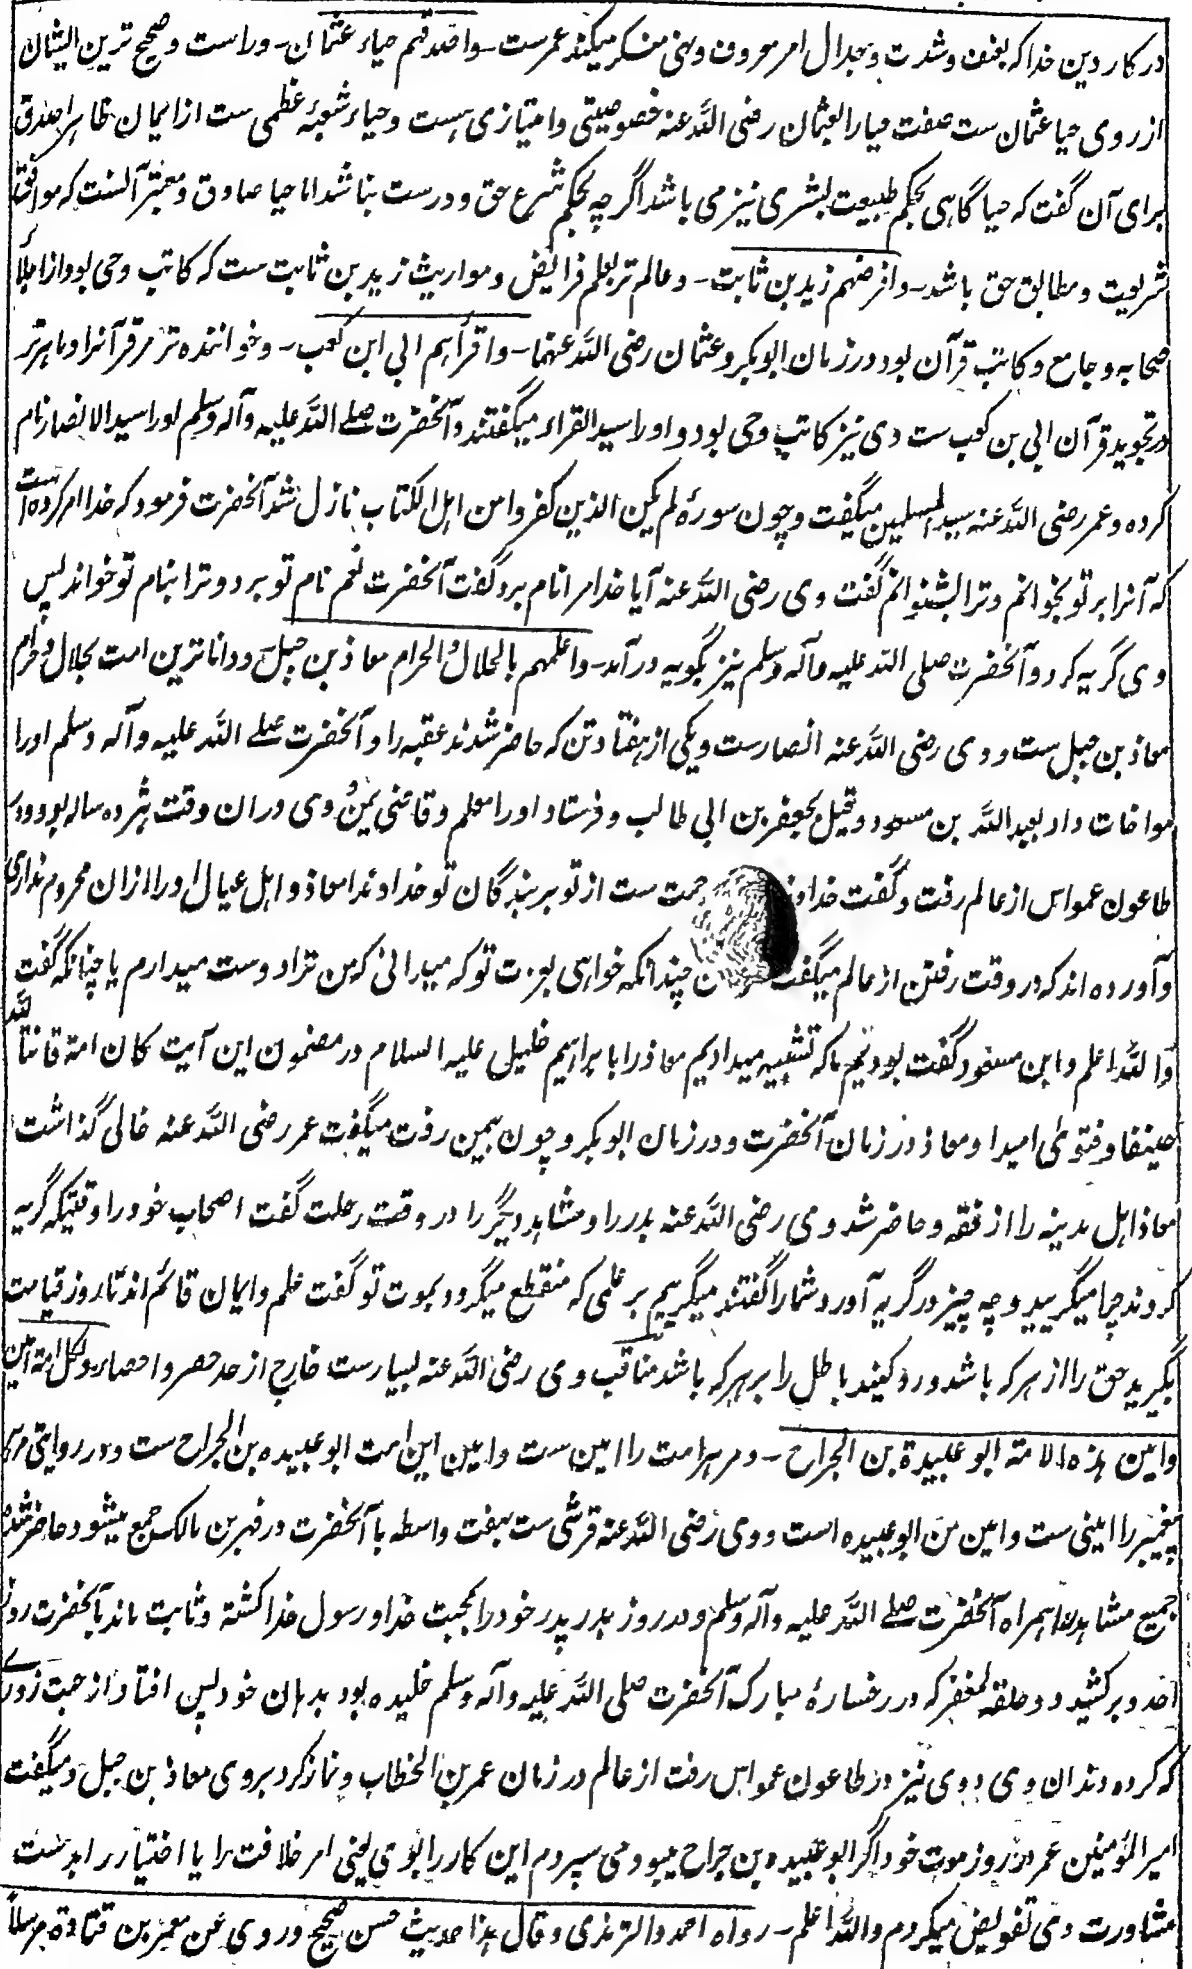 در کار دین خدا که بعنف و شدت و جدال امر معروف و نهی منکر میکند عمرست - واصدقهم حیاء عثمان - وراست و صحیح ترین ایشان
از روی حیا عثمان ست صفت حیا را بعثمان رضی الله عنه خصوصیتی و امتیازی هست و حیاء شعبۀ عظمی ست از ایمان ظاهرا صدق
برای آن گفت که حیا گاهی بحکم طبیعت بشری نیز می باشد اگرچه بحکم شرع حق و درست نباشد اما حیا صادق و معتبر آنست که موافق
شریعت و مطابق حق باشد - وافرضهم زید بن ثابت - و عالم تر بعلم فرائض و مواریث زید بن ثابت ست که کاتب وحی بود و از اجلۀ
صحابه و جامع و کاتب قرآن بود در زمان ابوبکر و عثمان رضی الله عنهما - واقرأهم ابی ابن کعب - و خواننده تر مر قرآنرا و ماهر تر
در تجوید قرآن ابی بن کعب ست وی نیز کاتب وحی بود و اورا سید القراء میگفتند و آنحضرت صلے الله علیه وآله وسلم اورا سید الانصار نام
کرده و عمر رضی الله عنه سید المسلمین میگفت و چون سورۀ لم یکن الذین کفروا من اهل الکتاب نازل شد آنحضرت فرمود که خدا امر کرده است
که آنرا بر تو بخوانم و ترا بشنوانم گفت وی رضی الله عنه آیا خدا مرا نام برد گفت آنحضرت نعم نام تو برد و ترا بنام تو خواند پس
وی گریه کرد و آنحضرت صلی الله علیه وآله وسلم نیز بگریه درآمد - واعلمهم بالحلال والحرام معاذ بن جبل - و داناترین امت بحلال و حرام
معاذ بن جبل ست و وی رضی الله عنه انصارست و یکی از هفتاد تن که حاضر شدند عقبه را و آنحضرت صلے الله علیه وآله وسلم اورا
مواخات داد بعبد الله بن مسعود و قیل بجعفر بن ابی طالب و فرستاد اورا معلم و قاضی یمن و وی دران وقت هژده ساله بود و در
طاعون عمواس از عالم رفت و گفت خداوندا رحمت ست از تو بر بندگان تو خداوندا معاذ و اهل عیال اورا ازان محروم نداری
و آورده اند که در وقت رفتن از عالم میگفت چندانکه خواهی بعزت تو که میدانی که من ترا دوست میدارم یا چنانکه گفت
والله اعلم و ابن مسعود گفت بودیم ما که تشبیه میدادیم معاذ را بابراهیم خلیل علیه السلام در مضمون این آیت کان امة قانتا لله
حنیفا و فتوی میداد معاذ در زمان آنحضرت و در زمان ابوبکر و چون بیمن رفت میگفت عمر رضی الله عنه خالی گذاشت
معاذ اهل مدینه را از فقه و حاضر شد وی رضی الله عنه بدر را و مشاهد دیگر را در وقت رحلت گفت اصحاب خود را وقتیکه گریه
کردند چرا میگریید و چه چیز در گریه آورد شما را گفتند میگرییم بر علمی که منقطع میگردد بموت تو گفت علم و ایمان قائم اند تا روز قیامت
بگیرید حق را از هر که باشد و رد کنید باطل را بر هر که باشد مناقب وی رضی الله عنه بسیارست خارج از حد حصر و احصار - ولکل امة امین
وامین هذه الامة ابو عبیدة بن الجراح - و مر هر امت را امین ست و امین این امت ابو عبیده بن الجراح ست و در روایتی مر هر
پیغمبر را امینی ست و امین من ابو عبیده است و وی رضی الله عنه قرشی ست بهفت واسطه با آنحضرت در فهر بن مالک جمع میشود حاضر شده
جمیع مشاهد را همراه آنحضرت صلے الله علیه وآله وسلم و در روز بدر پدر خود را بمحبت خدا و رسول خدا کشته و ثابت ماند بآنحضرت روز
احد و برکشید دو حلقه مغفر که در رخسارۀ مبارک آنحضرت صلی الله علیه وآله وسلم خلیده بود بدهان خود پس افتاد از جهت زورے
که کرده دندان وی و وی نیز در طاعون عمواس رفت از عالم در زمان عمر بن الخطاب و نماز کرد بر وی معاذ بن جبل و میگفت
امیر المؤمنین عمر در روز موت خود اگر ابو عبیده بن جراح میبود می سپردم این کار را بوی یعنی امر خلافت را یا اختیار را بدست
مشاورت وی تفویض میکردم والله اعلم - رواه احمد والترمذی وقال هذا حدیث حسن صحیح وروی عن معمر بن قتادة مرسلاً